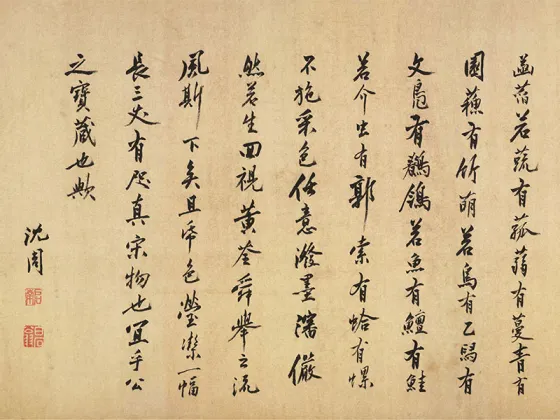 菡萏若蔬有菰蒻有蔓青有
園蘓有竹萌若鳥有乙有
文鳧有若魚有鱣有鮭
若介虫有郭索有蛤有螺
不施采色任意潑墨瀋儼
然若生回視黄筌舜舉之流
風斯下矣且帋色瑩潔一幅
長三丈有咫真宋物也宜手公
之寶藏也歟
沈周